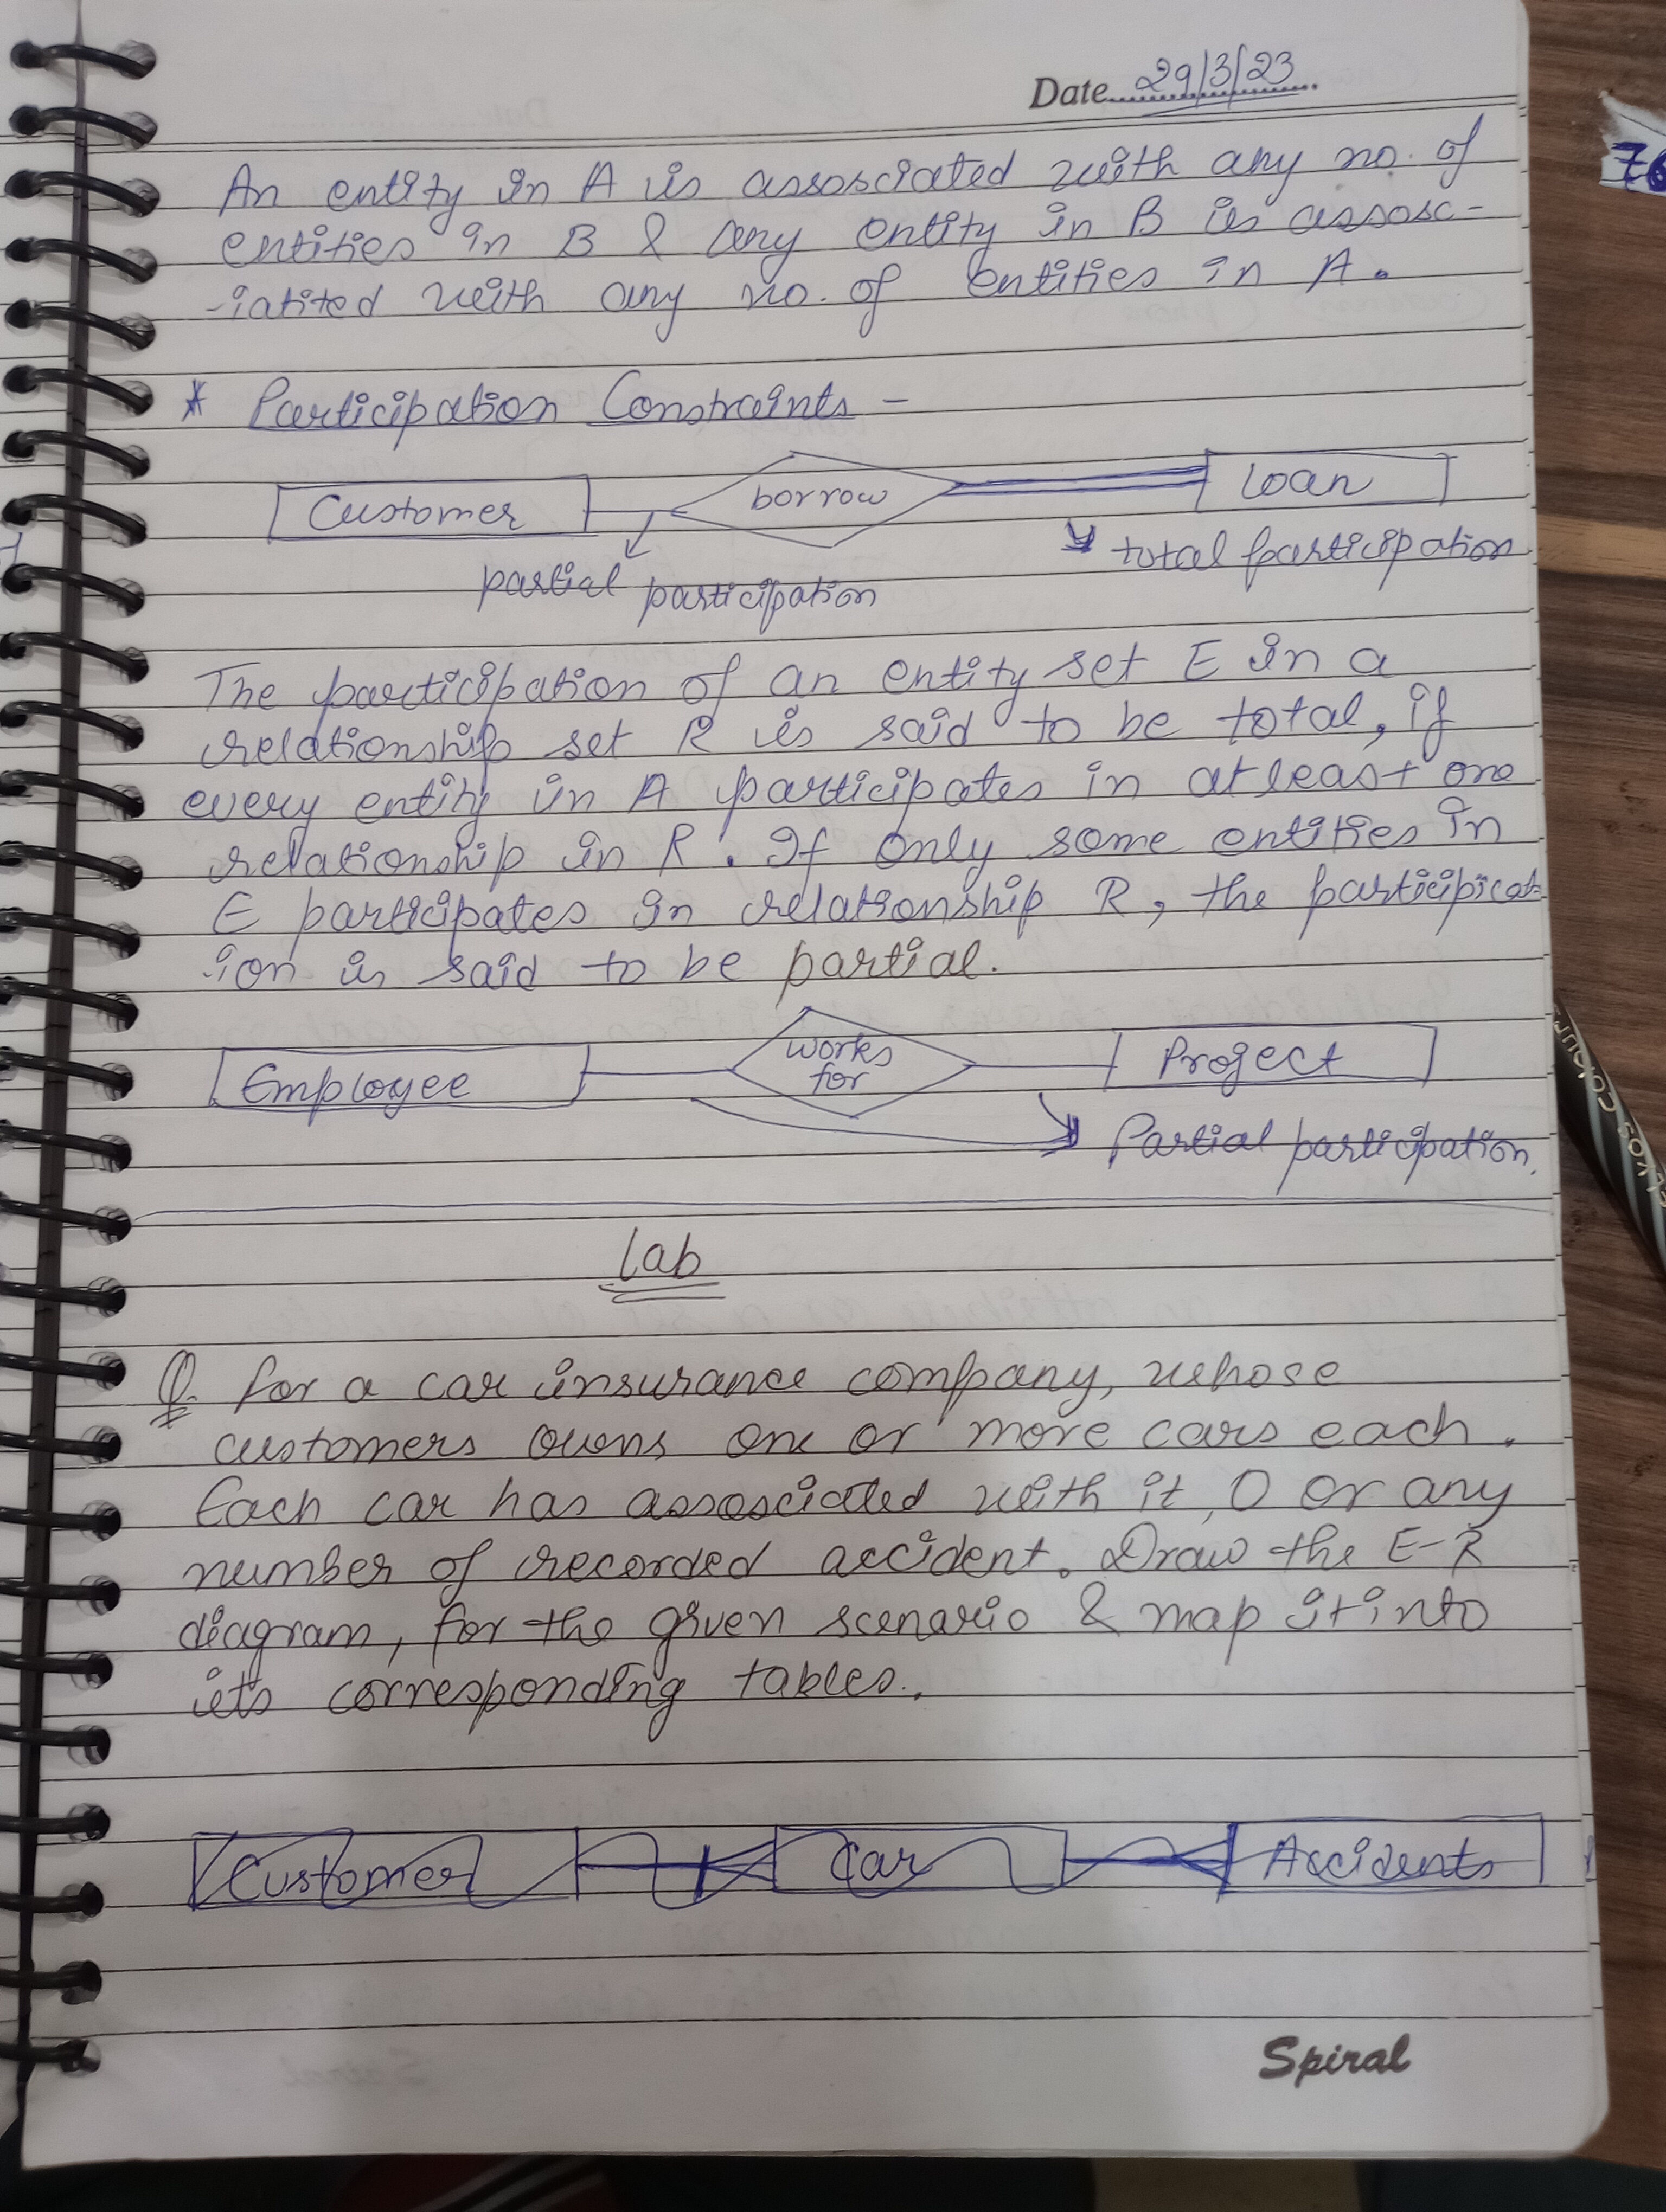 Date 29/3/23
An entity in A is assosciated with any no. of
entities in B & any entity in B is assosc-
-iatited with any no. of entities in A.
* Participation Constraints -
Customer borrow Loan
total participation
partial participation
The participation of an entity set E in a
relationship set R is said to be total, if
every entity in A participates in atleast one
relationship in R. If only some entities in
E participates in relationship R, the participicat-
ion is said to be partial.
Employee works for Project
Partial participation.
Lab
Q. for a car insurance company, whose
customers owns one or more cars each.
Each car has assosciated with it, 0 or any
number of recorded accident. Draw the E-R
diagram, for the given scenario & map it into
it's corresponding tables.
Customer Car Accidents
Spiral